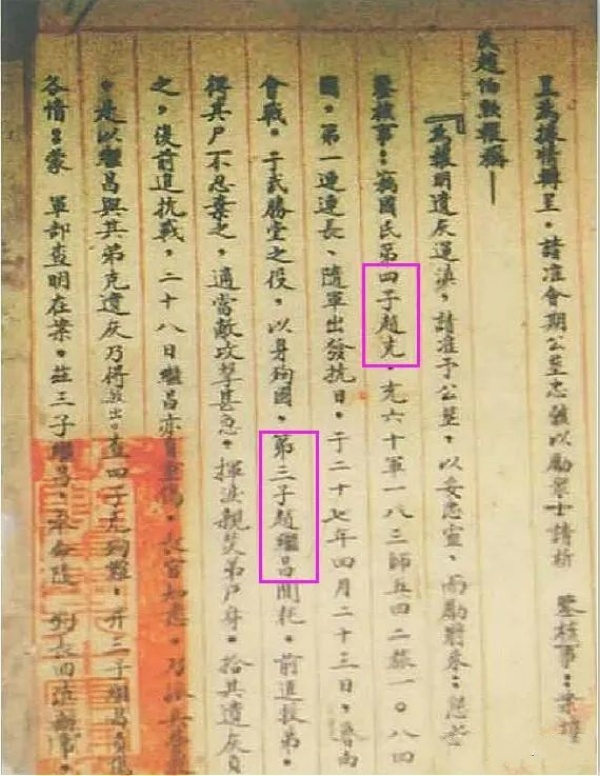 呈為據情轉呈。請准會期公葬忠骸以勵眾士請祈　鑒核事：案據
民趙伯勲報稱—
『為報明遺灰運滇，請准予公葬，以妥忠靈，而勵將來：懇者
鑒核事：竊國民第四子趙克，充六十軍一八三師五四二旅一〇八四
團，第一連連長、隨軍出發抗日。于二十七年四月二十三日，魯南
會戰。于武勝堂之役，以身殉國。第三子趙繼昌聞耗。前進援弟。
得其尸不忍棄之，適當敵攻擊甚急。揮淚親焚弟尸身。拾其遺灰負
之，復前進抗戰，二十八日繼昌亦負重傷，
。是以繼昌與其弟克遺灰乃得並出。查四子克殉難，并三子繼昌負傷
各情：蒙　軍部查明在案。茲三子繼昌，奉命隨　　回滇